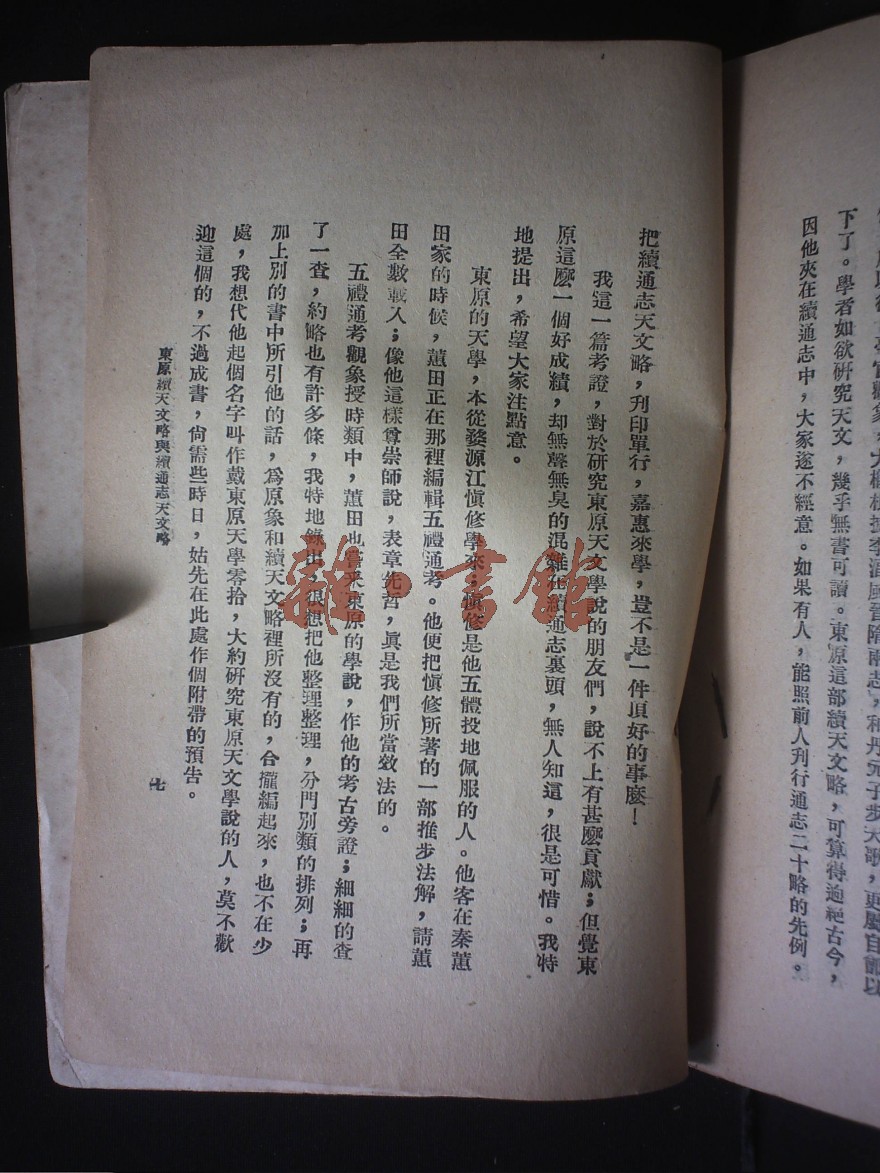 下了。學者如欲研究天文，幾乎無書可讀。東原這部續天文略，可算得迥絕古今，
因他夾在續通志中，大家遂不經意。如果有人，能照前人刋行通志二十略的先例。
把續通志天文略，刋印單行，嘉惠來學，豈不是一件頂好的事麽！
我這一篇考證，對於研究東原天文學說的朋友們，說不上有甚麽貢獻；但覺東
原這麽一個好成績，却無聲無臭的混雜在續通志裏頭，無人知道，很是可惜。我特
地提出，希望大家注點意。
東原的天學，本從婺源江愼修學來；愼修是他五體投地佩服的人。他客在秦蕙
田家的時候，蕙田正在那裡編輯五禮通考。他便把愼修所著的一部推步法解，請蕙
田全數載入；像他這樣尊崇師說，表章先哲，眞是我們所當效法的。
五禮通考觀象授時類中，蕙田也嘗采東原的學說，作他的考古旁證；細細的查
了一查，約略也有許多條，我特地錄出，很想把他整理整理，分門別類的排列；再
加上別的書中所引他的話，爲原象和續天文略裡所沒有的，合攏編起來，也不在少
處，我想代他起個名字叫作戴東原天學零拾，大約研究東原天文學說的人，莫不歡
迎這個的，不過成書，尙需些時日，姑先在此處作個附帶的預告。
東原續天文略與續通志天文略
七
雜·書館